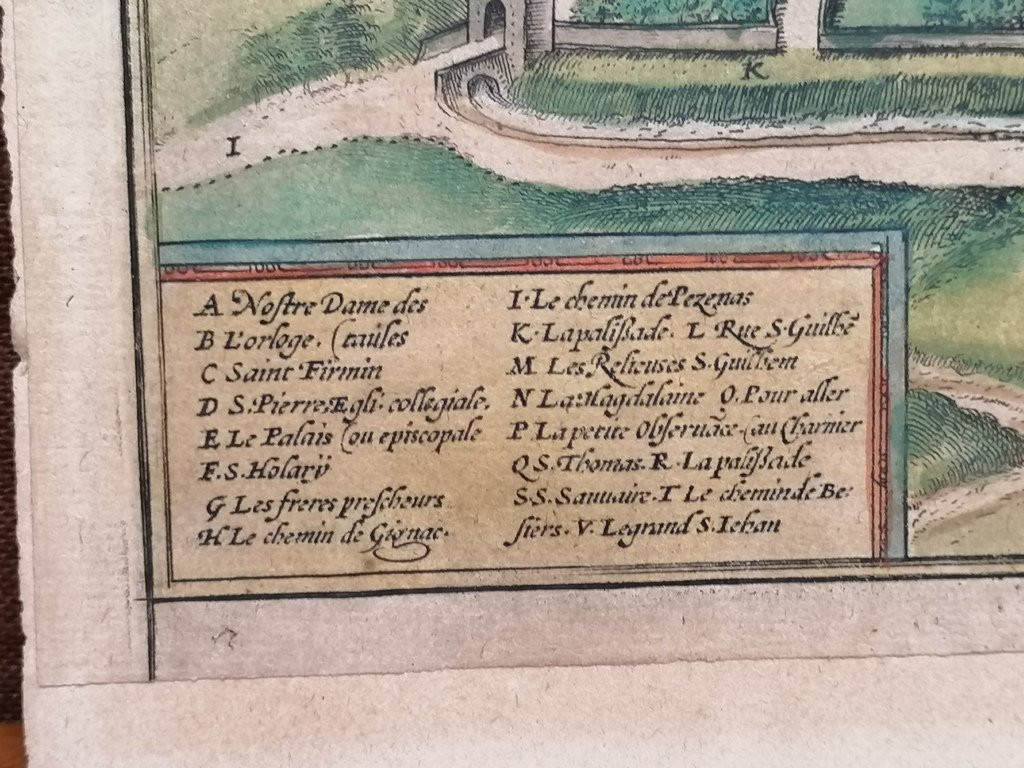 I
K
A Nostre Dame des
B L'orloge. (taules
C Saint Firmin
D S. Pierre. Egli. collegiale.
E Le Palais (ou episcopale
F. S. Holarÿ
G Les freres prescheurs
H Le chemin de Gignac.
I. Le chemin de Pezenas
K. La palißade. L Rue S. Guilhē
M Les Relieuses S. Guilhem
N La Magdalaine O. Pour aller
P La petite Observāce (au Charnier
Q S. Thomas. R. La palißade
S S. Sauuaire. T Le chemin de Be:
siers. V. Le grand S. Iehan